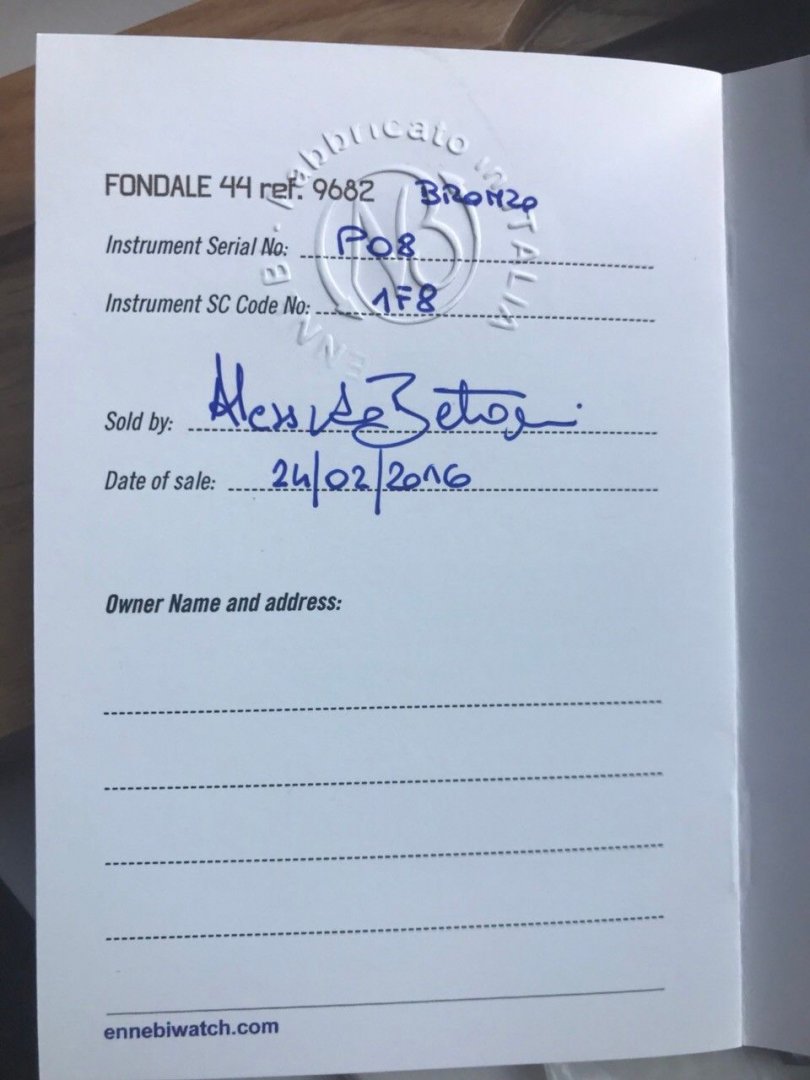 FONDALE 44 ref. 9682 BRONZO
Instrument Serial No: P08
Instrument SC Code No: 1F8
Sold by:
Date of sale: 24/02/2016
Owner Name and address:
ennebiwatch.com
ENNEBI · Fabbricato in ITALIA
NB